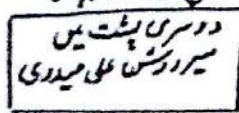 دوسری پشت میں
میر روشن علی حیدری